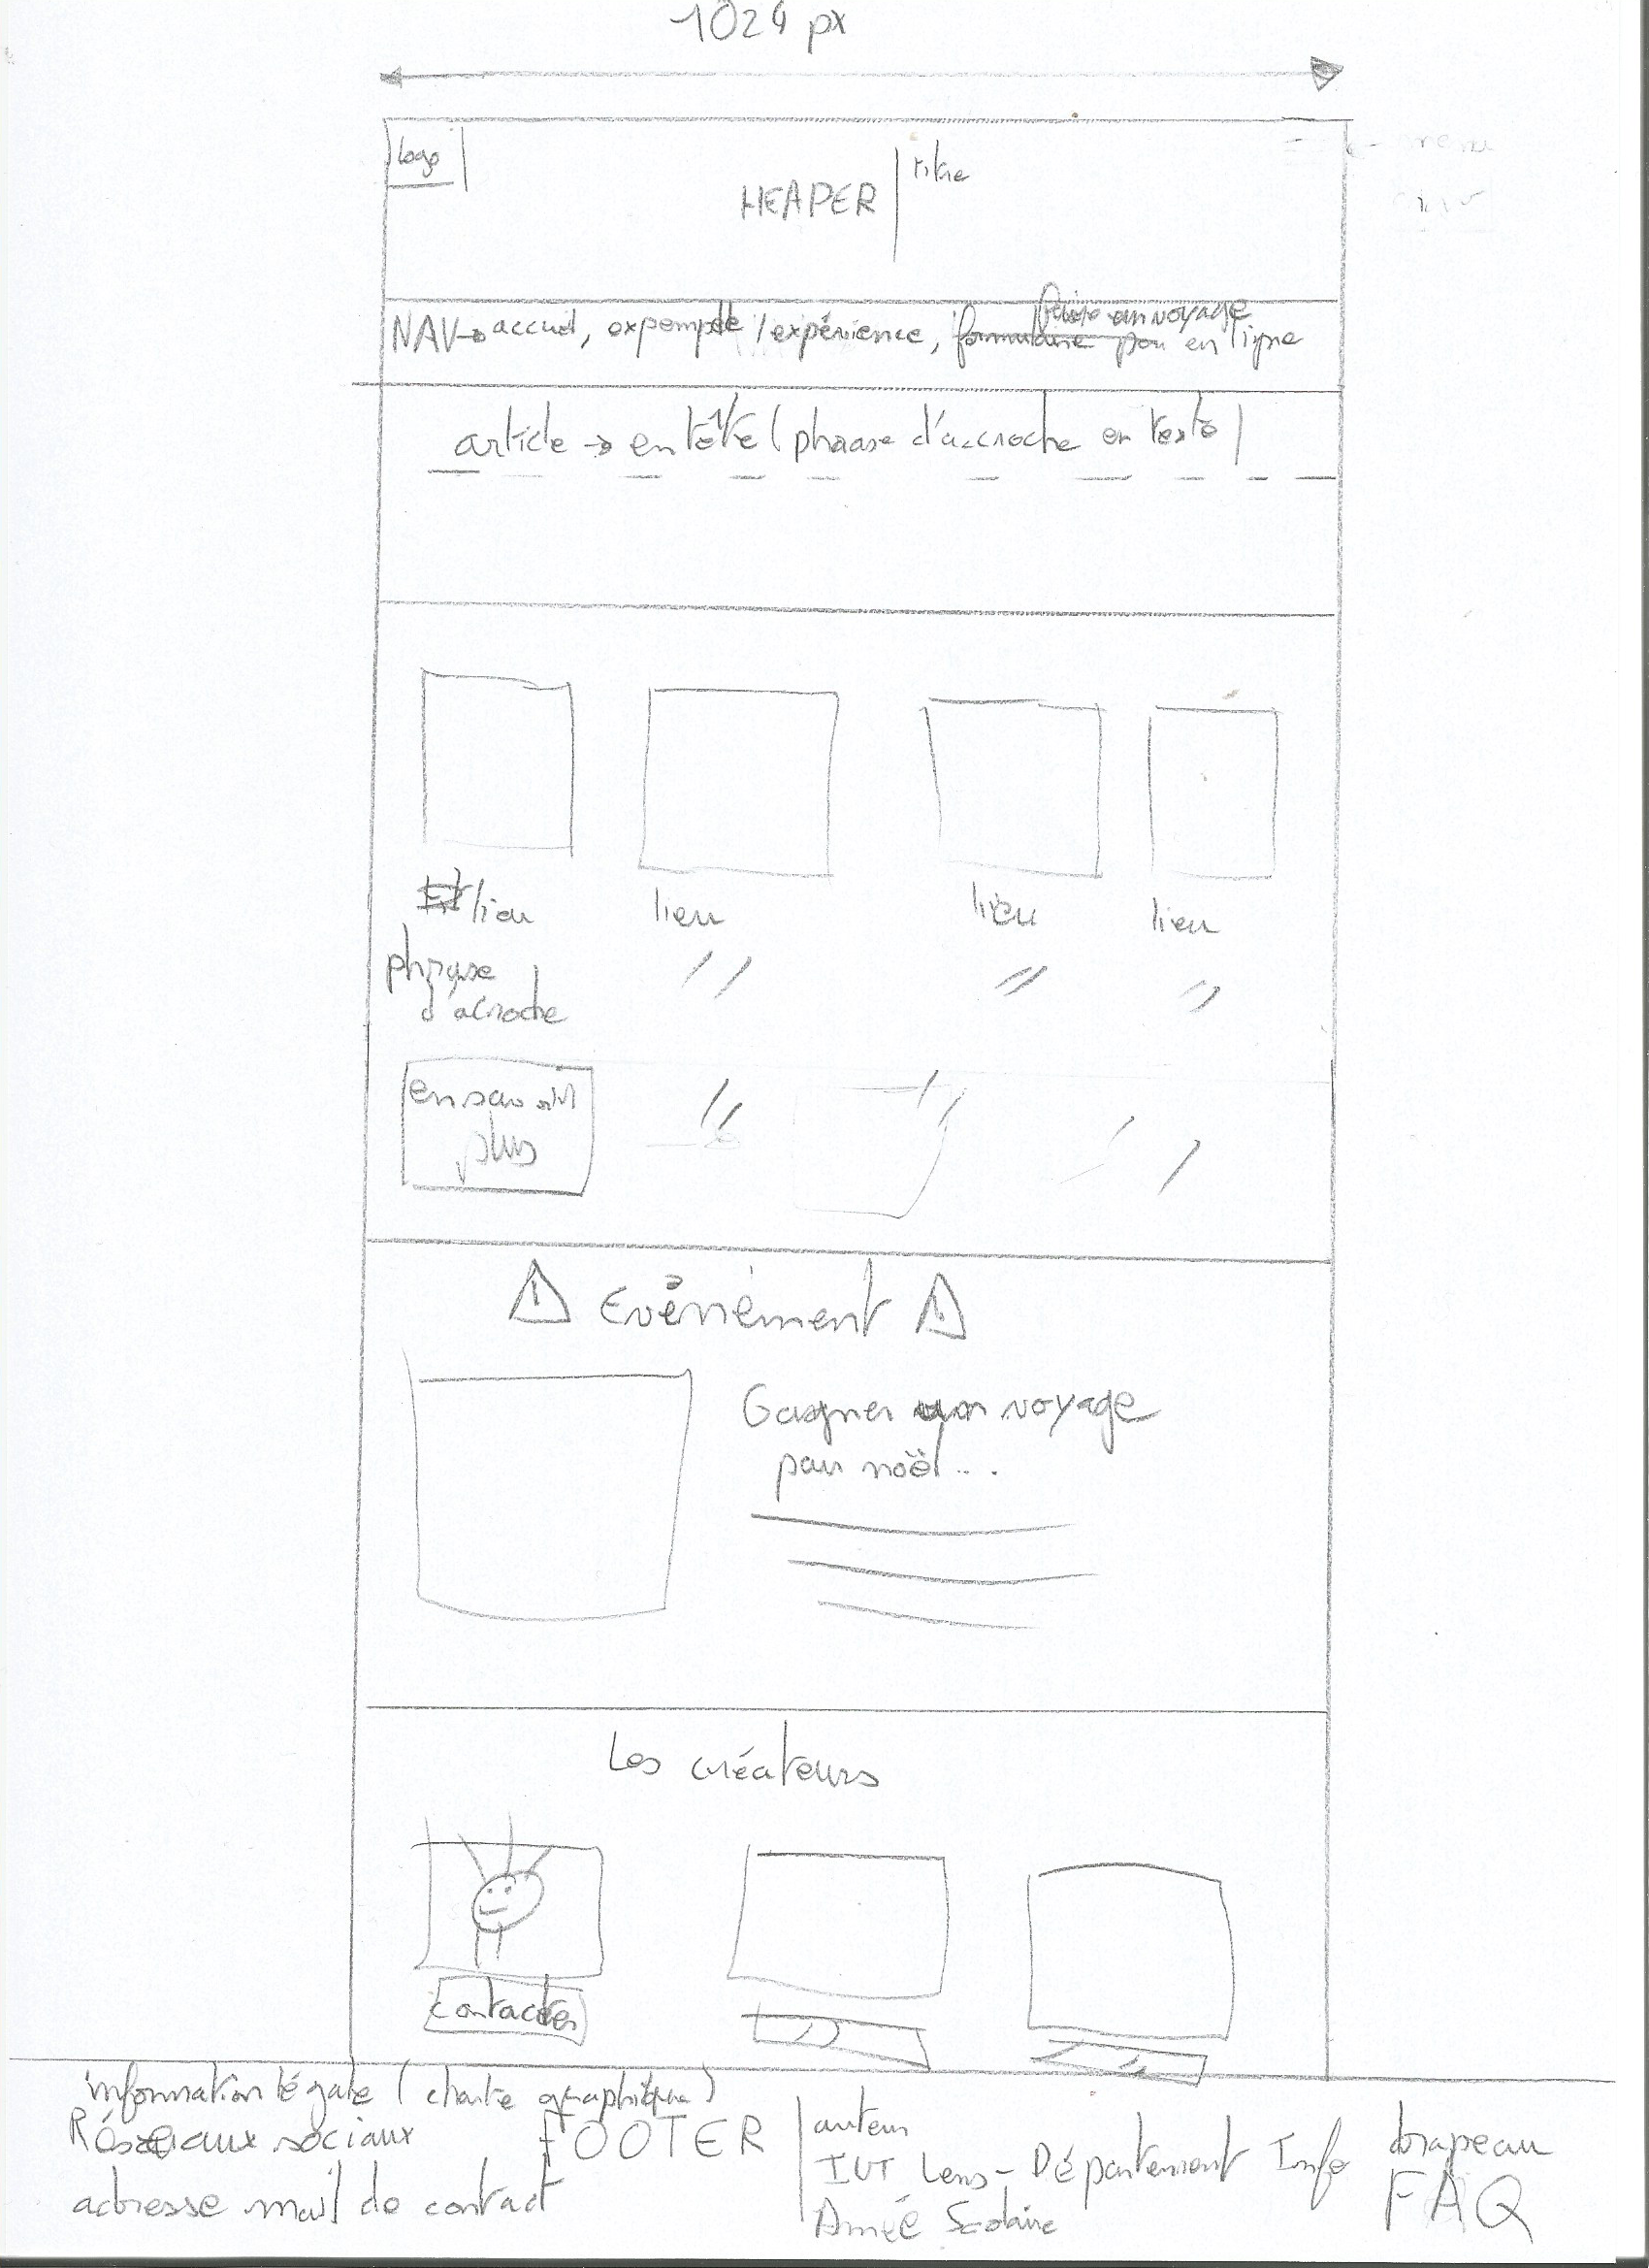 1024 px
logo
titre
HEADER
faire un voyage
NAV → accueil, exemple / expérience, formulaire pou en ligne
article → en tête (phrase d'accroche en texte)
lieu lieu lieu lieu
phrase // // //
d'acroche
en savoir // //
plus
⚠ Evènement ⚠
Gagner un voyage
pour noël...
Les créateurs
contacter
information légale (charte graphique)
Réseaux sociaux
FOOTER
adresse mail de contact
auteur
IUT Lens - Département Info
Année Scolaire
drapeau
FAQ